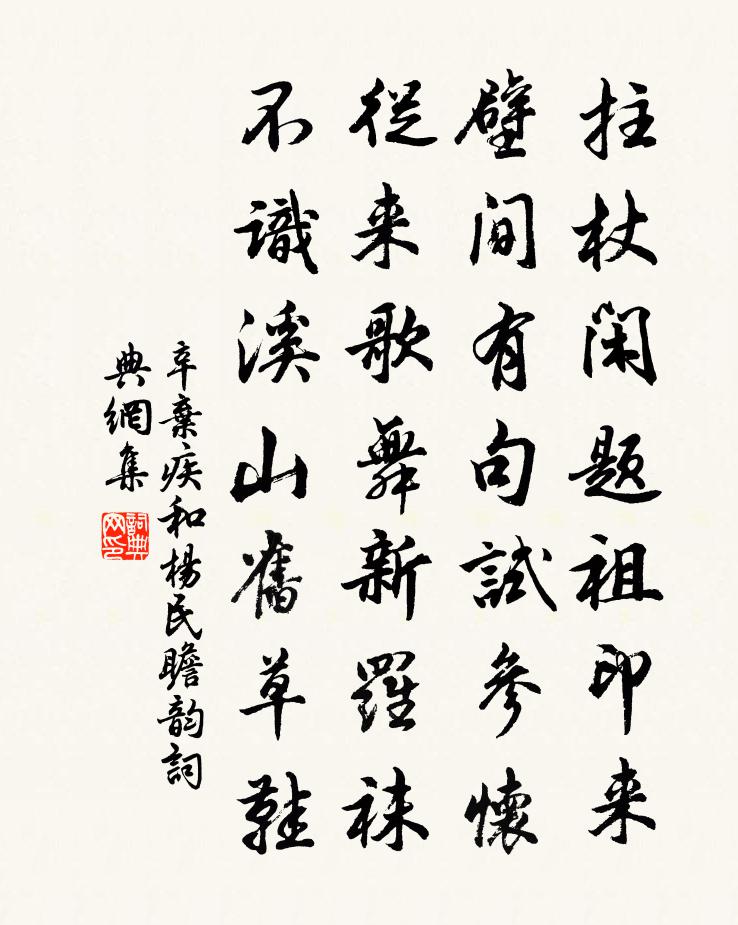 拄杖閑题祖印来
壁间有句試參懷
從来歌舞新羅袜
不識溪山舊草鞋
辛棄疾和楊民瞻韵詞
典網集
詞典
网印